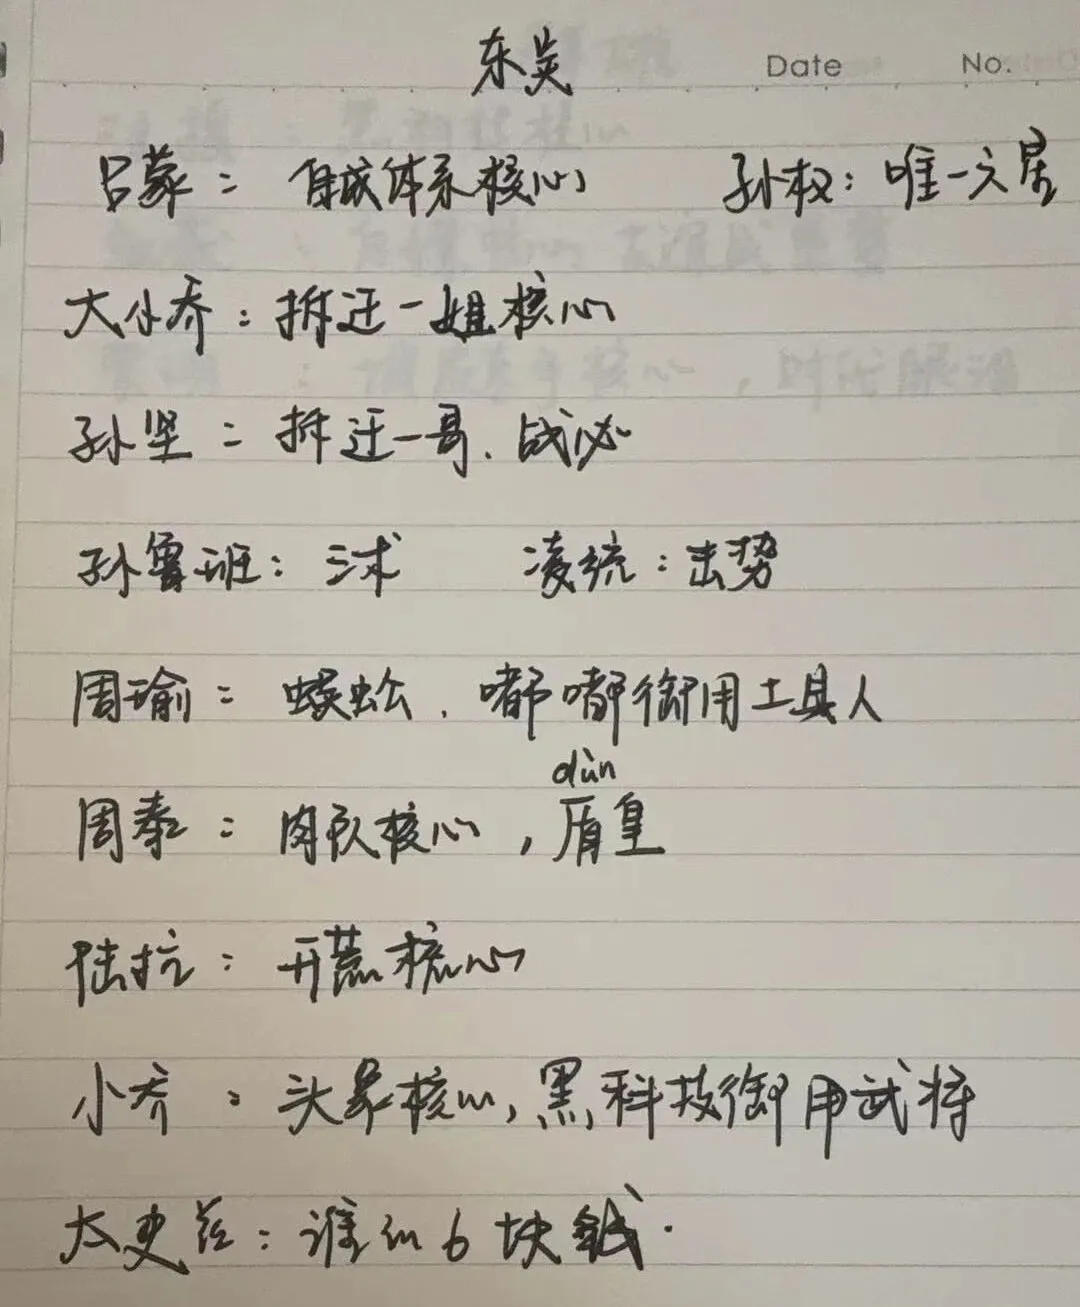 东吴 Date No.
吕蒙：自成体系核心 孙权：唯一文启
大小乔：拆迁一姐核心
孙坚：拆迁一哥.战必
孙鲁班：三求 凌统：击势
周瑜：蜈蚣.嘟嘟御用工具人
dùn
周泰：肉队核心，盾皇
陆抗：开荒核心
小乔：头象核心，黑科技御用武将
太史慈：谁的6块钱.